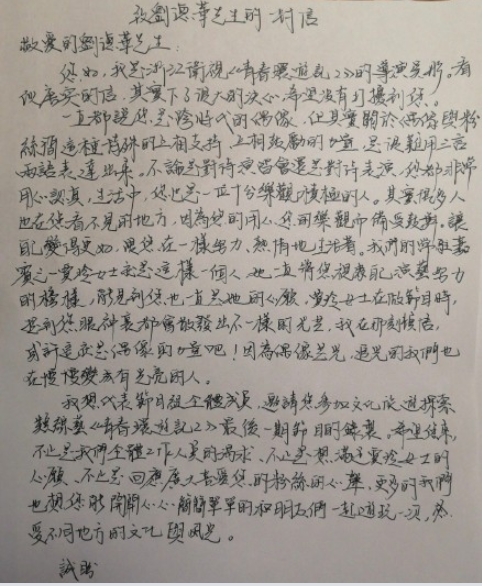 致劉德華先生的一封信
敬愛的劉德華先生:
您好,我是浙江衛視《青春環遊記2》的導演吳彤。看
似展突的信,其實下了很大的決心,希望沒有打擾到您。
一直都說您是跨時代的偶像,但其實關於偶像與粉
絲間這種特殊的互相支持,互相鼓勵的力量,是很難用三言
兩語表達出來。不論是對待演唱會還是對待表演,您都非常
用心認真,生活中,您也是一位十分樂觀積極的人。其實很多人
也在您看不見的地方,因為您的用心,您的樂觀而備受鼓舞。讓
自己變得更好,跟您在一樣努力、熱情地生活著。我們的常駐嘉
賓之一賈玲女士就是這樣一個人,她一直將您視為自己演藝努力
的榜樣,能見到您也一直是她的心願,賈玲女士在做節目時,
提到您眼神裏都會散發出不一樣的光芒,我在那刻相信,
或許這就是偶像的力量吧!因為偶像是光,追光的我們也
在慢慢變成有光亮的人。
我想代表節目組全體成員,邀請您參加文化旅遊探索
類綜藝《青春環遊記2》最後一期節目的錄製。希望您來,
不止是我們全體工作人員的渴求,不止是想滿足賈玲女士的
心願,不止是回應廣大喜愛您的粉絲的心聲,更多的我們
也想您能開開心心、簡簡單單的和朋友們一起遊玩一次,感
受不同地方的文化與風光。
誠盼